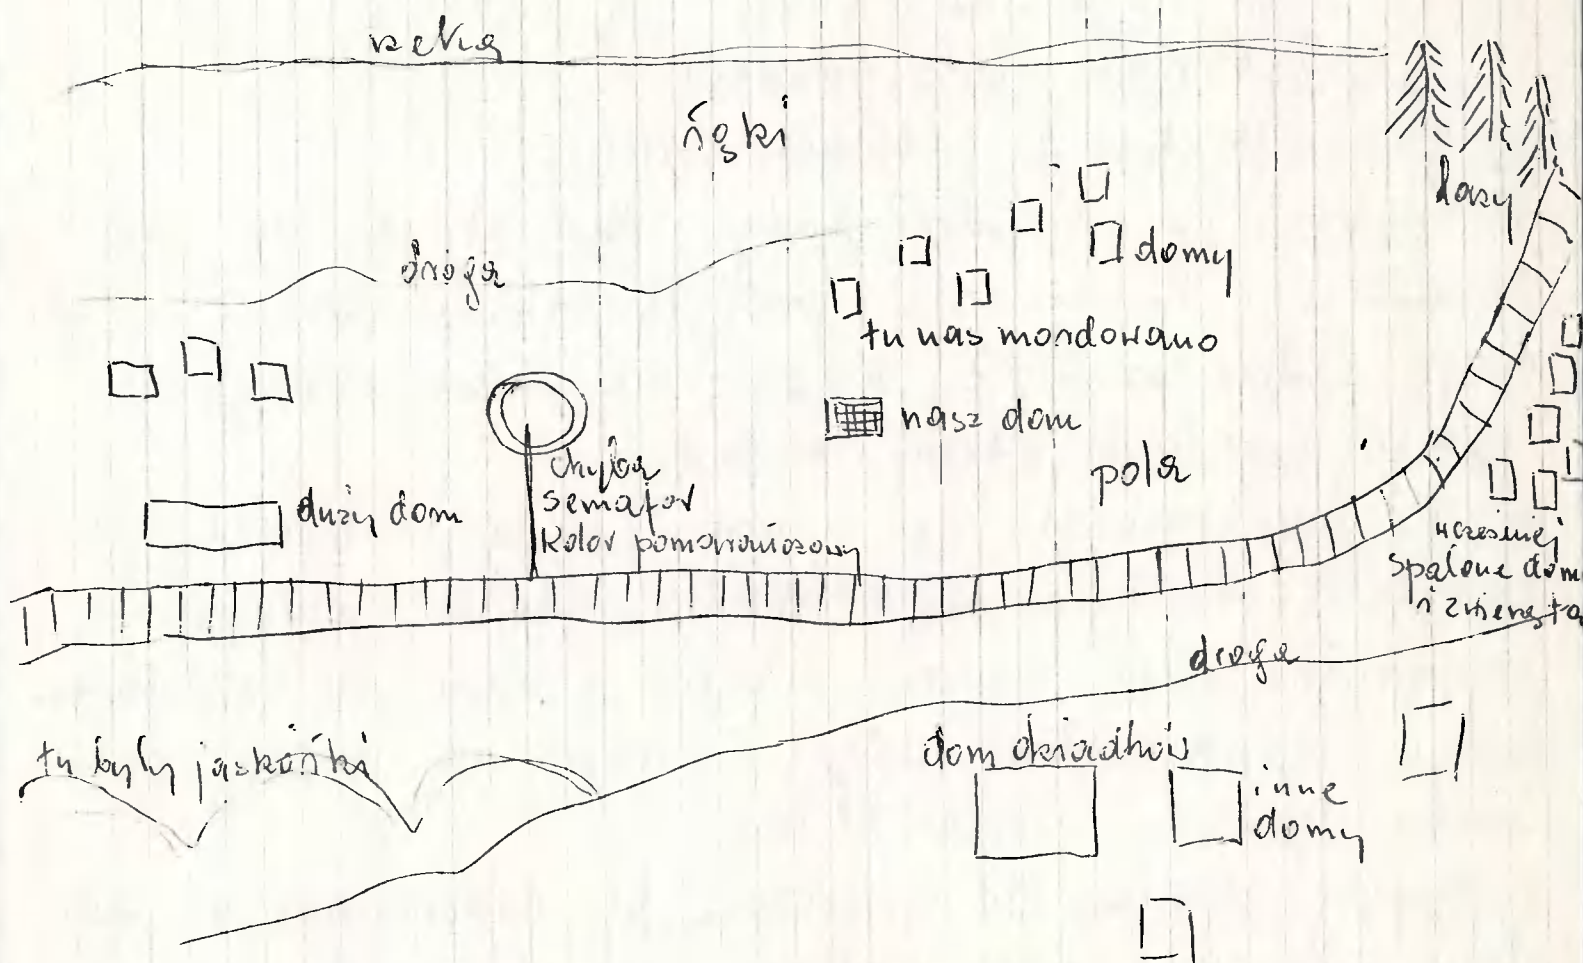 rzeka
łąki
lasy
droga
domy
tu nas mordowano
nasz dom
chyba
semafor
Kolor pomarańczowy
pola
duży dom
wcześniej
spalone dom
i zwierzęta
droga
tu były jaskółki
dom dziadków
inne
domy